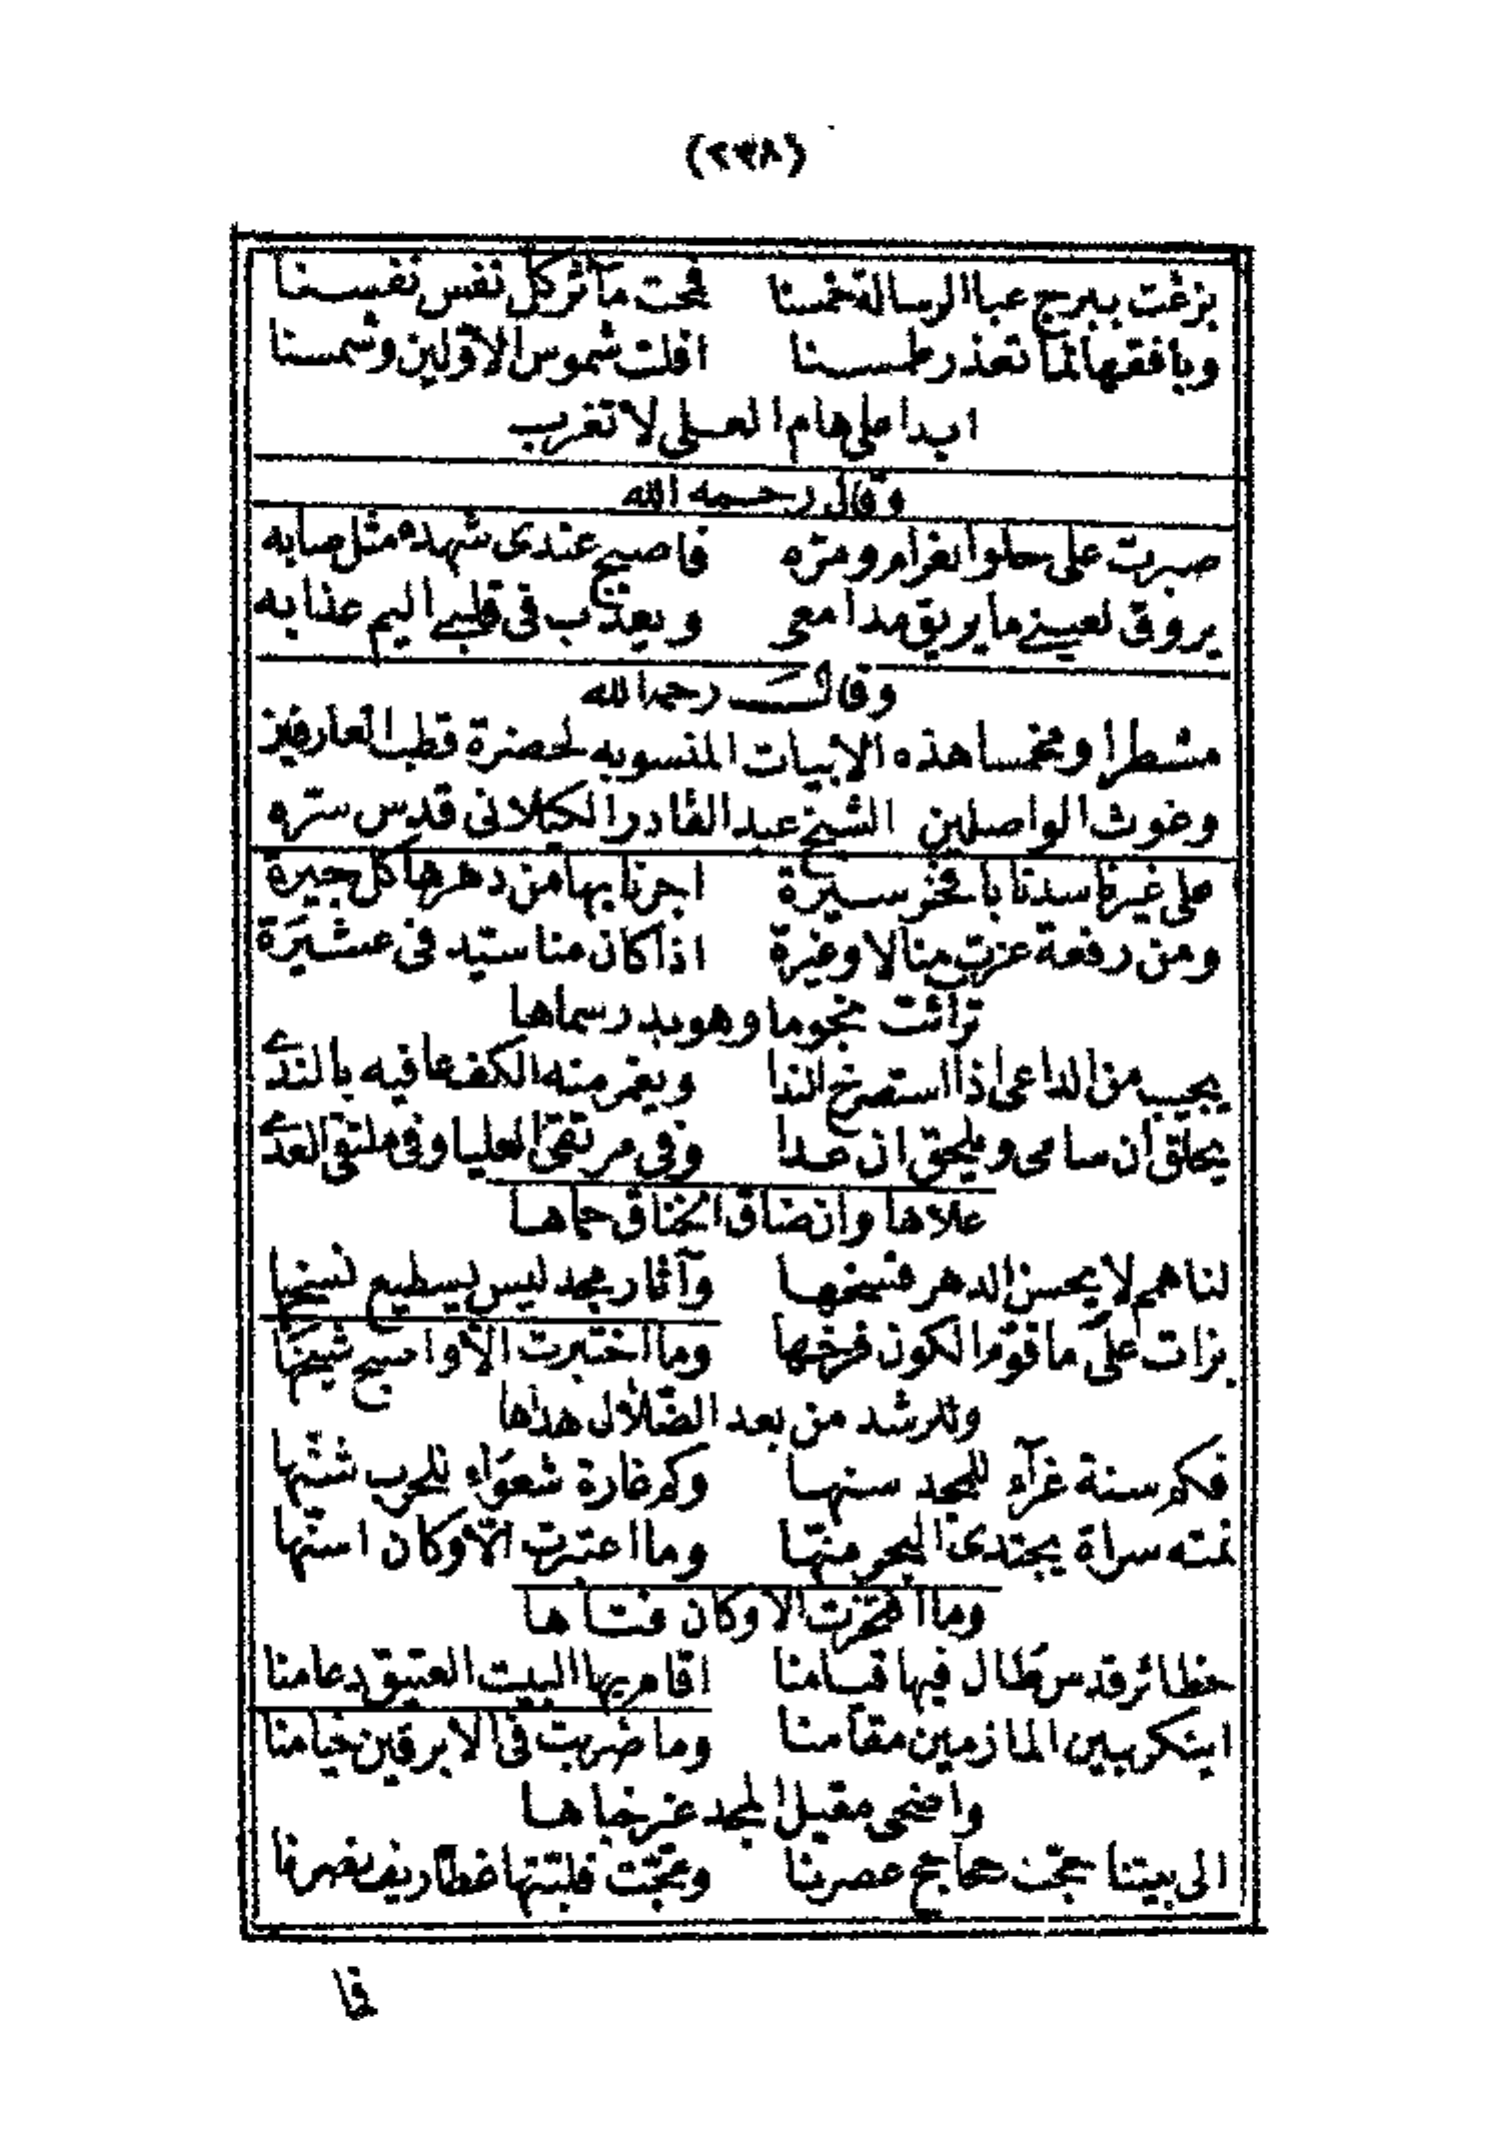 (٢٣٨)
بزغت ببرج عبا الرسالة خمسنا فمحت مآثر كل نفس نفسنا
وبافقها لما تعذر طمسنا افلت شموس الاولين وشمسنا
ابدا على هام العلى لا تغرب
وقال رحمه الله
صبرت على حلو الغرام ومره فاصبح عندى شهده مثل صابه
يروق لعينى ما يريق مدامعى ويعذب فى قلبى اليم عذابه
وقال رحمه الله
مشطرا ومخمسا هذه الابيات المنسوبه لحضرة قطب العارفين
وغوث الواصلين الشيخ عبد القادر الكيلانى قدس سره
على غيرنا سدنا بافخر سيرة اجرنا بها من دهرها كل جيرة
ومن رفعة عزت منالا وغيرة اذا كان منا سيد فى عشيرة
ترائت نجوما وهو بدر سماها
يجيب من الداعى اذا استصرخ الندا ويغمر منه الكف عافيه بالندى
يحلق ان سامى ويلحق ان عدا وفى مرتقى العليا وفى ملتقى العدى
علاها وان ضاق الخناق حماها
لنا همم لا يحسن الدهر فسخها وآثار مجد ليس يسطيع نسخها
بزات على ما قوم الكون فرخها وما اختبرت الا واصبح شيخها
وللرشد من بعد الضلال هداها
فكم سنة غرآء للمجد سنها وكم غارة شعواء للحرب شنها
نمته سراة يجتدى البحر منها وما اعتبرت الا وكان اسنها
وما افتخرت الا وكان فتاها
حظائر قدس طال فيها قيامنا اقام بها البيت العتيق دعامنا
ابتكر بين المازمين مقامنا وما ضربت فى الابرقين خيامنا
واضحى مقيل المجد غير خباها
الى بيتنا حجت حجاجح عصرنا وعجت فلبتها غطاريف نضرنا
فما